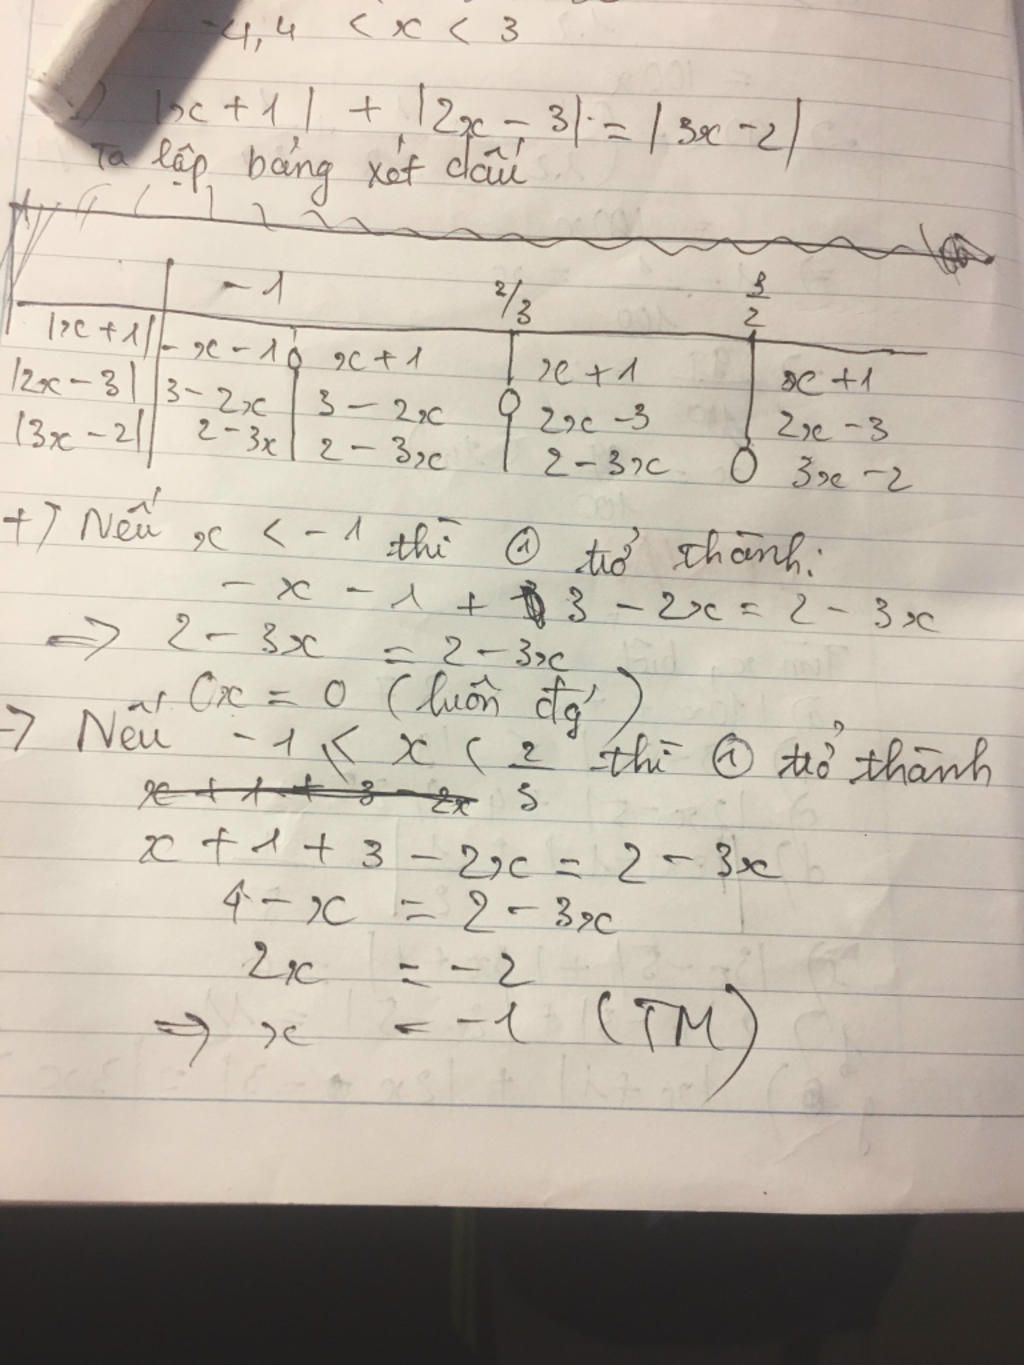 -4,4 < x < 3
|x + 1| + |2x - 3| = |3x - 2|
Ta lập bảng xét dấu
-1 2/3 3/2
|x + 1| -x - 1 x + 1 x + 1 x + 1
|2x - 3| 3 - 2x 3 - 2x 2x - 3 2x - 3
|3x - 2| 2 - 3x 2 - 3x 2 - 3x 3x - 2
+) Nếu x < -1 thì ① trở thành:
-x - 1 + 3 - 2x = 2 - 3x
=> 2 - 3x = 2 - 3x
0x = 0 (luôn đg)
Nếu -1 ≤ x < 2/3 thì ① trở thành
x + 1 + 3 - 2x
x + 1 + 3 - 2x = 2 - 3x
4 - x = 2 - 3x
2x = -2
=> x = -1 (TM)